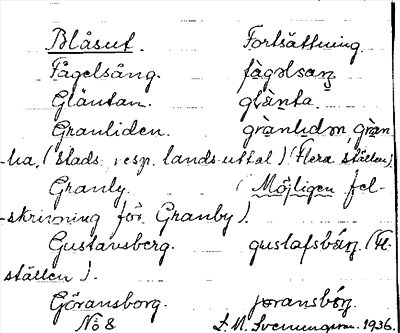 Blåsut. Fortsättning.
Fågelsång. fàgəlsaŋ
Gläntan. glànta.
Granliden. grànlidən, gràn-
-lia. (stads- resp. landsuttal) (Flera ställen).
Granly. (Möjligen fel-
-skrivning för Granby).
Gustavsberg. gustafsbǽrj. (Fl.
ställen).
Göransborg. jöransbórj.
No 8 S. M. Svenungsson. 1936.